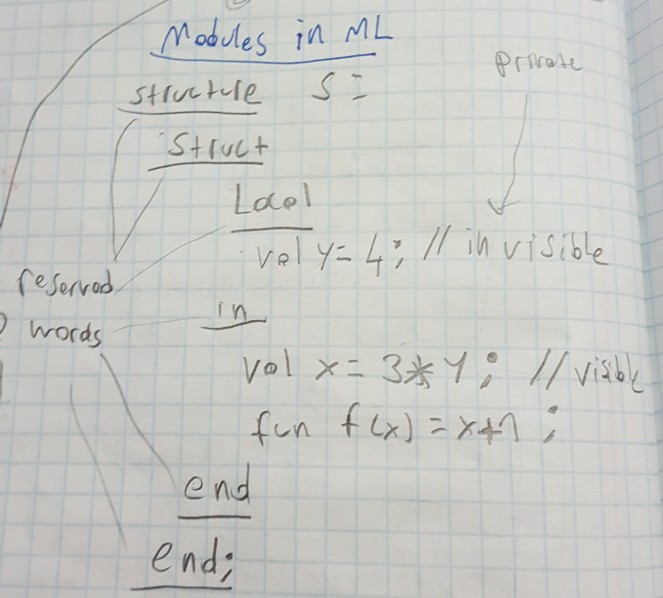 Modules in ML
private
structure S =
struct
Local
val y = 4; // invisible
reserved
words
in
val x = 3 * y; // visible
fun f(x) = x+1;
end
end;